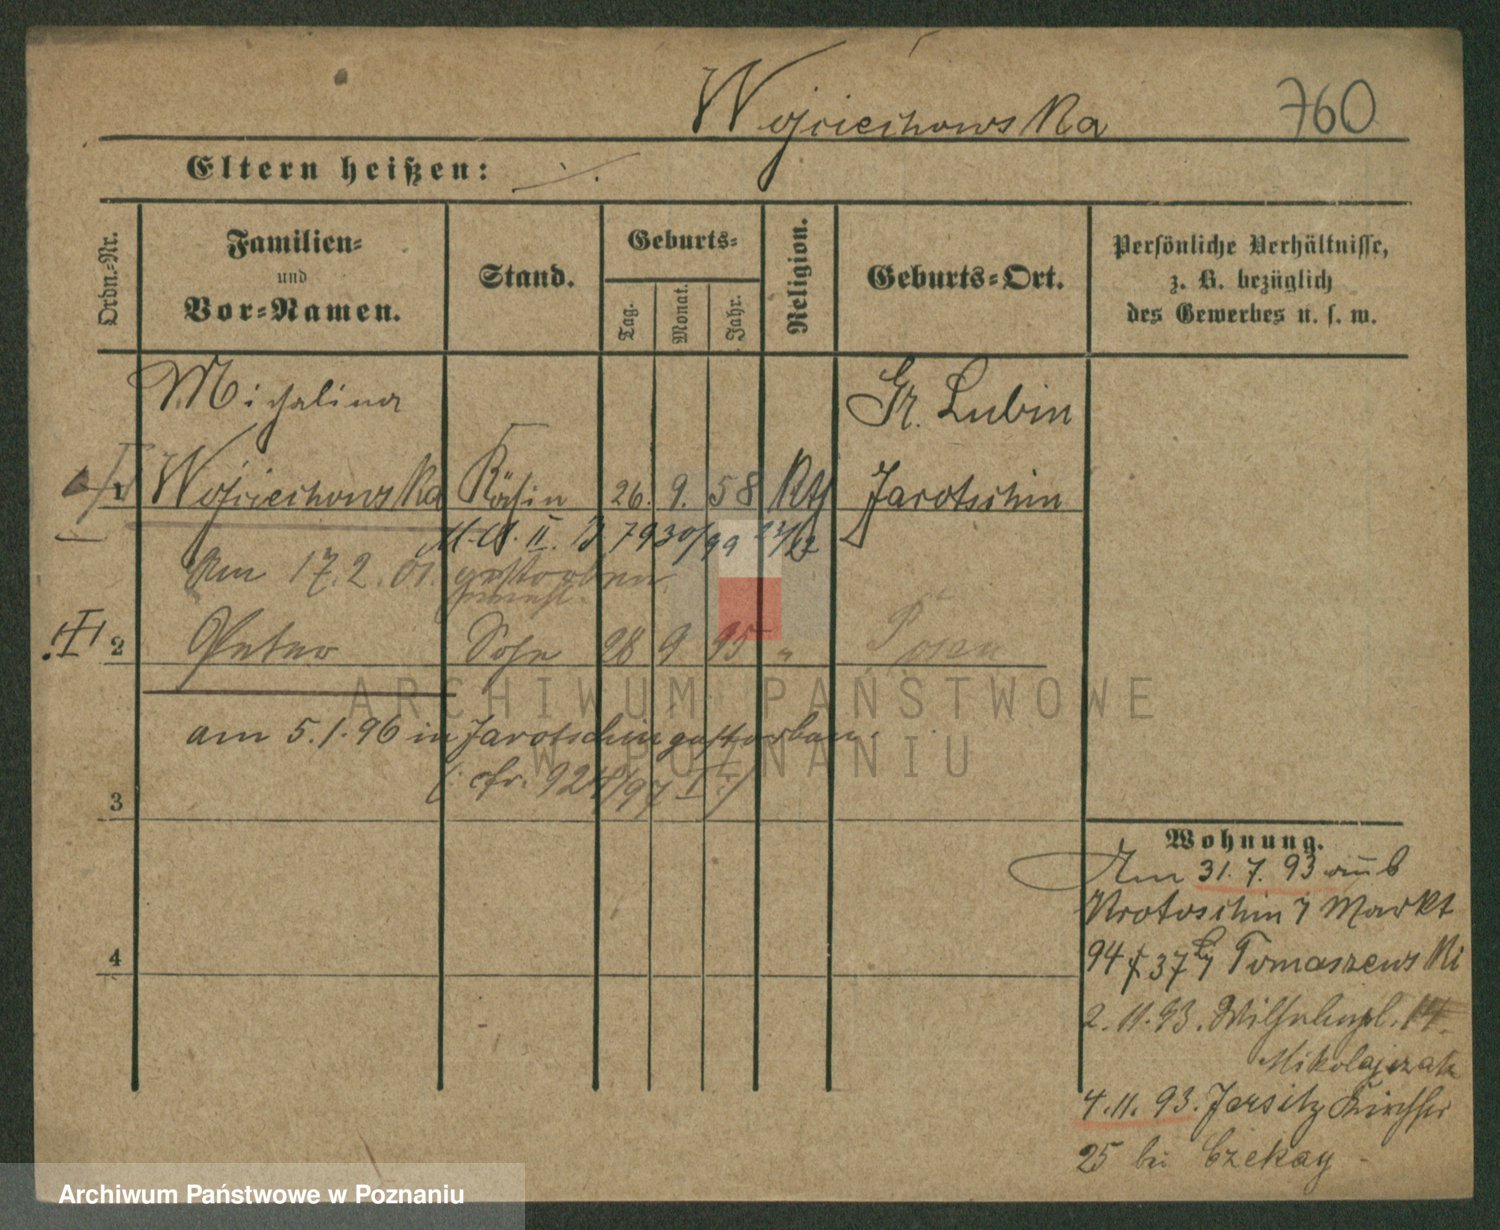 Wojciechowska 760
Eltern heißen: ./.
Ordn.-Nr.
Familien-
und
Vor-Namen.
Stand.
Geburts-
Tag.
Monat.
Jahr.
Religion.
Geburts-Ort.
Persönliche Verhältnisse,
z. B. bezüglich
des Gewerbes u. s. w.
Michalina Gr. Lubin
I
1 Wojciechowska Köchin 26. 9. 58 Kth Jarotschin
II.
Am 17.2.01. gestorben
2 Peter Sohn 28 9 95 " Posen
am 5.1.96 in Jarotschin gestorben.
(: cfr. 924/97 I :)
3
4
Wohnung.
Am 31.7.93 aus
Krotoschin Markt
94 37 Tomaszewski
2.11.93. Wilhelmspl. 14.
Mikolajczak
4.11.93. Jersitz Kirchstr
25 bei Czekay
ARCHIWUM PAŃSTWOWE
W POZNANIU
Archiwum Państwowe w Poznaniu